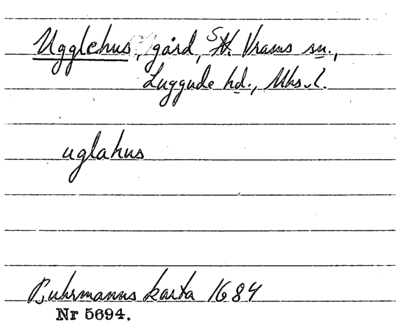 Ugglehus, gård, St. Vrams sn.,
Luggude hd., Mhs. l.
uglahus
Buhrmanns karta 1684
Nr 5694.